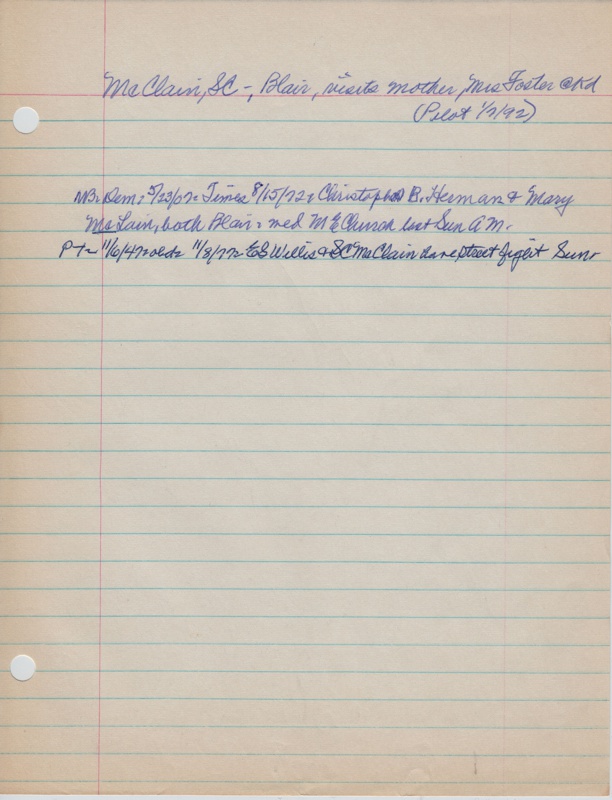 McClain, SC -, Blair, visits mother, Mrs Foster @ Kd
(Pilot 1/7/92)
NB: Dem: 5/23/07: Times 8/15/72: Christopher B. Herman & Mary
McLain, both Blair: wed M E Church last Sun A M.
PT- 11/6/47: olds 11/8/77: ES Willis & SC McClain have street fight Sun.